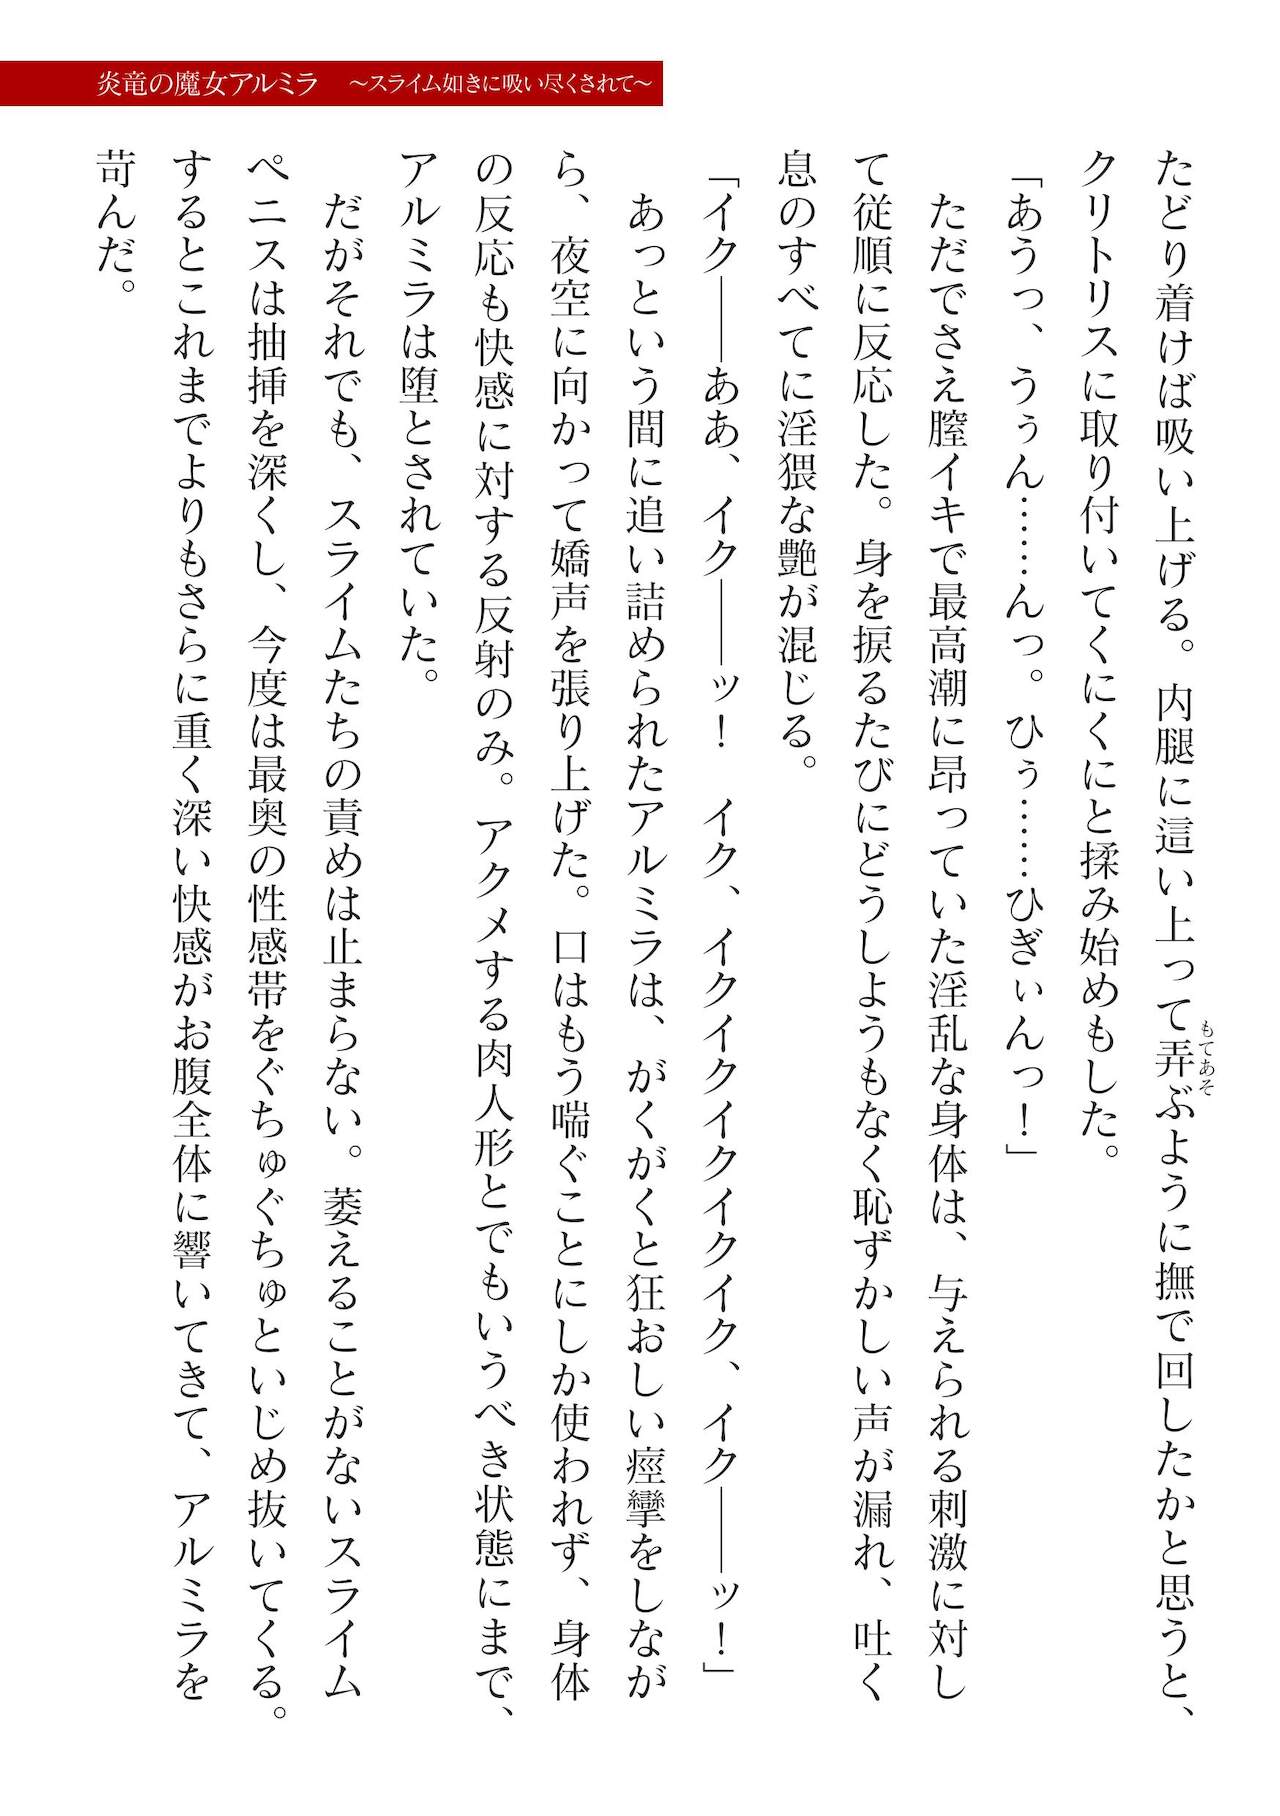 炎竜の魔女アルミラ　～スライム如きに吸い尽くされて～
たどり着けば吸い上げる。内腿に這い上って弄ぶように撫で回したかと思うと、
もてあそ
クリトリスに取り付いてくにくにと揉み始めもした。
「あうっ、うぅん……んっ。ひぅ……ひぎぃんっ！」
ただでさえ膣イキで最高潮に昂っていた淫乱な身体は、与えられる刺激に対し
て従順に反応した。身を捩るたびにどうしようもなく恥ずかしい声が漏れ、吐く
息のすべてに淫猥な艶が混じる。
「イク――ああ、イク――ッ！　イク、イクイクイクイクイク、イク――ッ！」
あっという間に追い詰められたアルミラは、がくがくと狂おしい痙攣をしなが
ら、夜空に向かって嬌声を張り上げた。口はもう喘ぐことにしか使われず、身体
の反応も快感に対する反射のみ。アクメする肉人形とでもいうべき状態にまで、
アルミラは堕とされていた。
だがそれでも、スライムたちの責めは止まらない。萎えることがないスライム
ペニスは抽挿を深くし、今度は最奥の性感帯をぐちゅぐちゅといじめ抜いてくる。
するとこれまでよりもさらに重く深い快感がお腹全体に響いてきて、アルミラを
苛んだ。